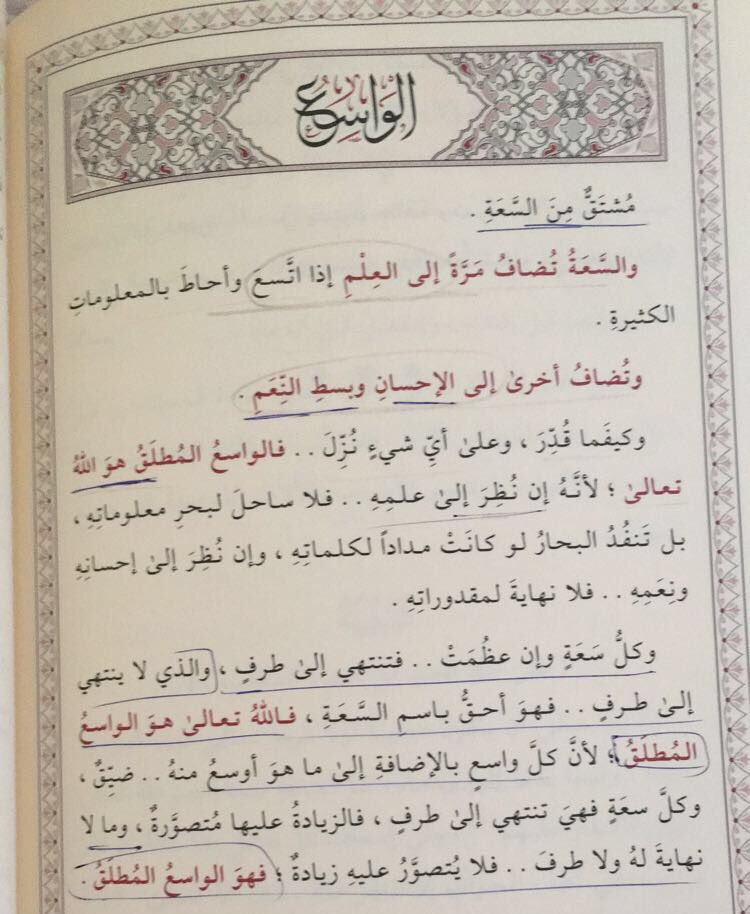 الواسع
مُشتَقٌّ مِنَ السَّعَةِ .
والسَّعَةُ تُضافُ مَرَّةً إلى العِلْمِ إذا اتَّسعَ وأحاطَ بالمعلوماتِ
الكثيرةِ .
وتُضافُ أخرىٰ إلى الإحسانِ وبسطِ النِّعَمِ .
وكيفَما قُدِّرَ ، وعلىٰ أيِّ شيءٍ نُزِّلَ . . فالواسعُ المُطلَقُ هوَ اللهُ
تعالىٰ ؛ لأنَّهُ إن نُظِرَ إلىٰ علمِهِ . . فلا ساحلَ لبحرِ معلوماتِهِ ،
بل تَنفُدُ البحارُ لو كانَتْ مداداً لكلماتِهِ ، وإن نُظِرَ إلىٰ إحسانِهِ
ونِعَمِهِ . . فلا نهايةَ لمقدوراتِهِ .
وكلُّ سَعَةٍ وإن عظُمَتْ . . فتنتهي إلىٰ طرفٍ ، والذي لا ينتهي
إلىٰ طرفٍ . . فهوَ أحقُّ باسمِ السَّعَةِ ، فاللهُ تعالىٰ هوَ الواسعُ
المُطلَقُ ؛ لأنَّ كلَّ واسعٍ بالإضافةِ إلىٰ ما هوَ أوسعُ منهُ . . ضيِّقٌ ،
وكلَّ سعةٍ فهيَ تنتهي إلىٰ طرفٍ ، فالزيادةُ عليها مُتصوَّرةٌ ، وما لا
نهايةَ لهُ ولا طرفَ . . فلا يُتصوَّرُ عليهِ زيادةٌ ؛ فهوَ الواسعُ المُطلَقُ .